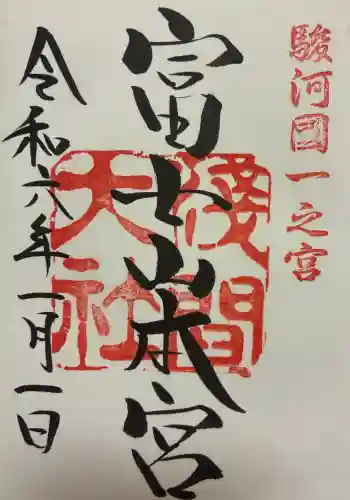 駿河国一之宮
富士山本宮
浅間
大社
令和六年一月一日